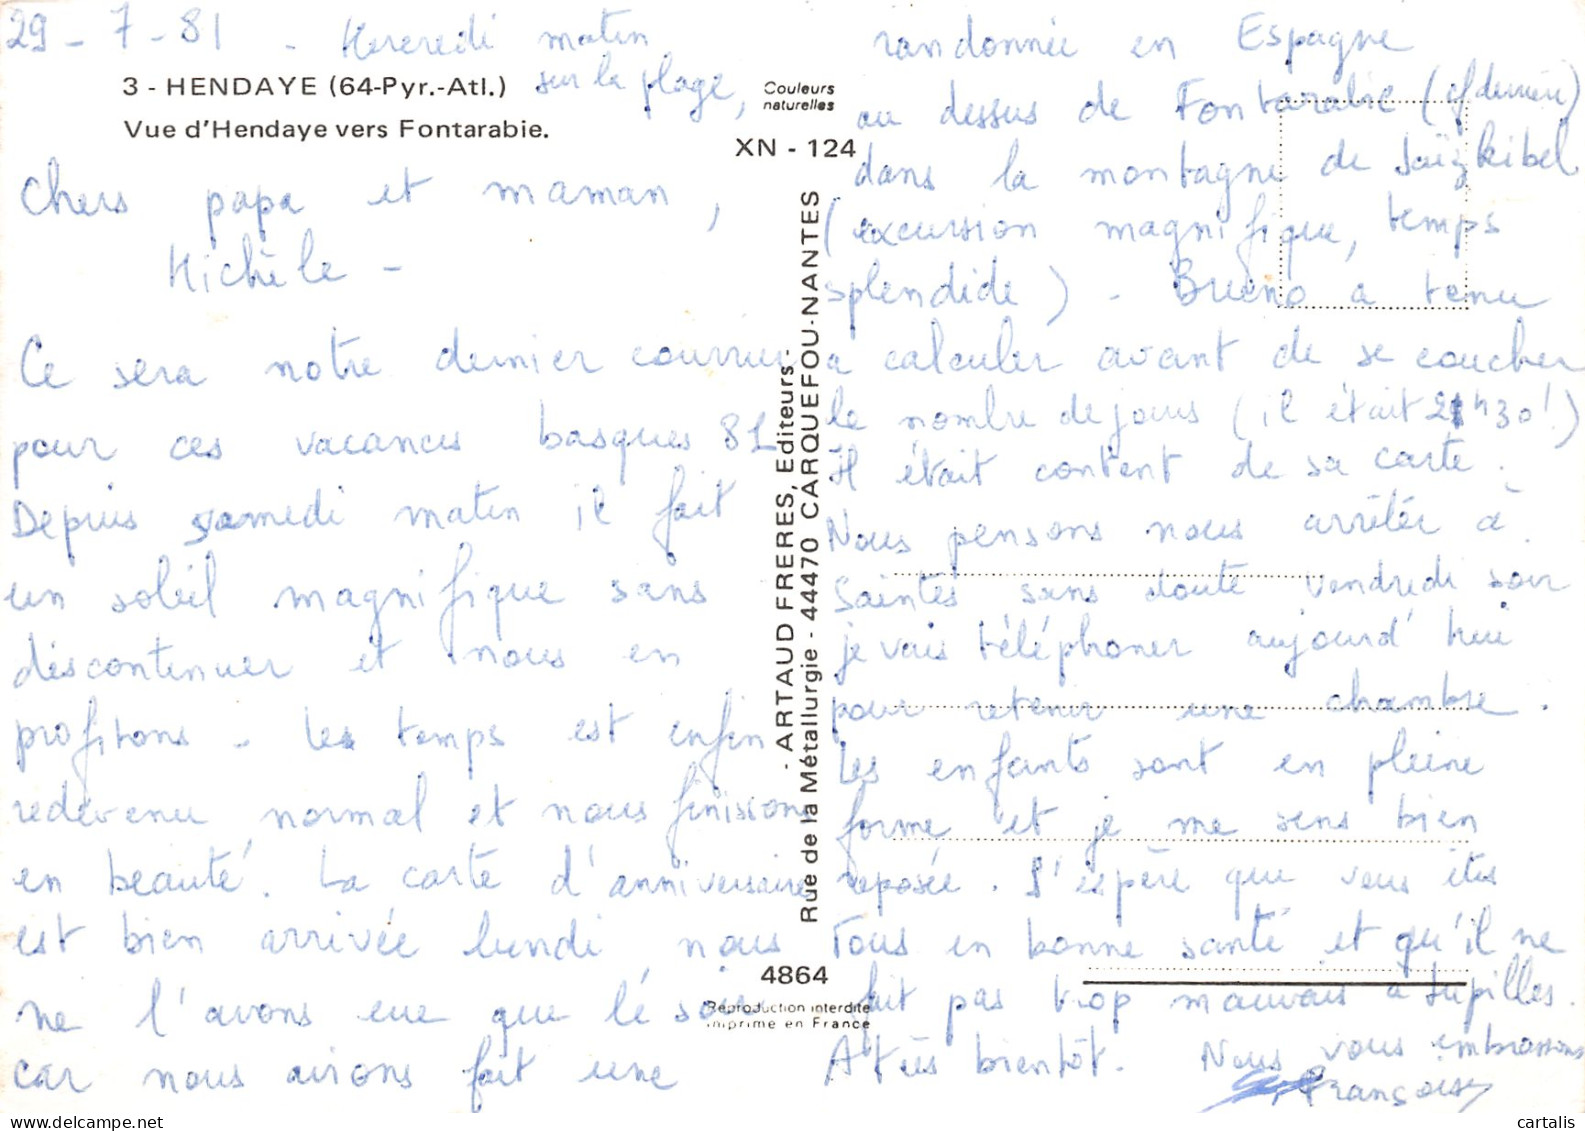 29-7-81 - Mercredi matin
sur la plage,
3 - HENDAYE (64-Pyr.-Atl.)
Vue d'Hendaye vers Fontarabie.
Chers papa et maman,
Michèle -
Ce sera notre dernier courrier
pour ces vacances basques 81
Depuis samedi matin il fait
un soleil magnifique sans
discontinuer et nous en
profitons - Les temps est enfin
redevenu normal et nous finissons
en beauté. La carte d'anniversaire
est bien arrivée lundi nous
ne l'avons eue que le soir
car nous avions fait une
Couleurs
naturelles
XN - 124
- ARTAUD FRERES, Editeurs -
Rue de la Métallurgie - 44470 CARQUEFOU-NANTES
4864
Reproduction interdite
Imprimé en France
randonnée en Espagne
au dessus de Fontarabie (cf derrière)
dans la montagne de Jaïzkibel
(excursion magnifique, temps
splendide) - Bruno a tenu
a calculer avant de se coucher
le nombre de jours (il était 21h30!)
Il était content de sa carte.
Nous pensons nous arrêter à
Saintes sans doute vendredi soir
je vais téléphoner aujourd'hui
pour retenir une chambre.
Les enfants sont en pleine
forme et je me sens bien
reposée. J'espère que vous êtes
Tous en bonne santé et qu'il ne
fait pas trop mauvais à Jupilles.
A très bientôt. Nous vous embrassons
Françoise
cartalis